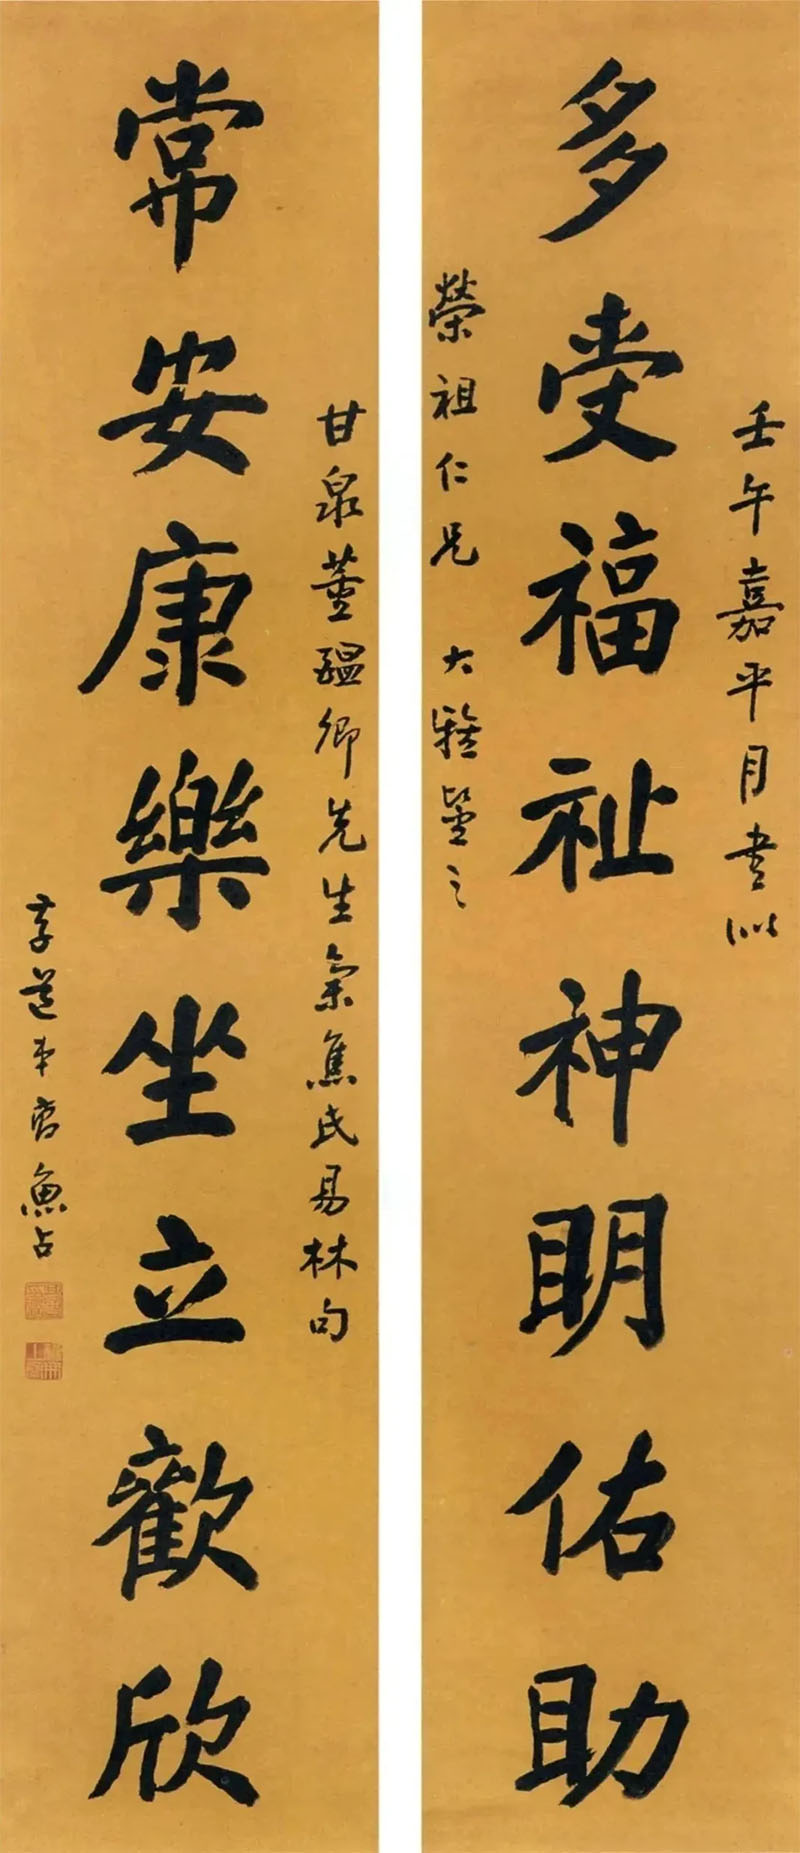 壬午嘉平月書似
多受福祉神明佑助
榮祖仁兄 大雅鑒之
甘泉董醞卿先生集焦氏易林句
常安康樂坐立歡欣